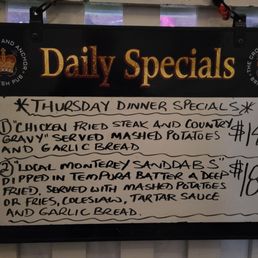 AND ANCHOR
Daily Specials
THE CRO
*THURSDAY DINNER SPECIALS*
1) "CHICKEN FRIED STEAK AND COUNTRY
GRAVY" SERVED MASHED POTATOES
AND GARLIC BREAD
2) "LOCAL MONTEREY SANDDABS"
DIPPED IN TEMPURA BATTER & DEEP
FRIED, SERVED WITH MASHED POTATOES
OR FRIES, COLESLAW, TARTAR SAUCE
AND GARLIC BREAD.